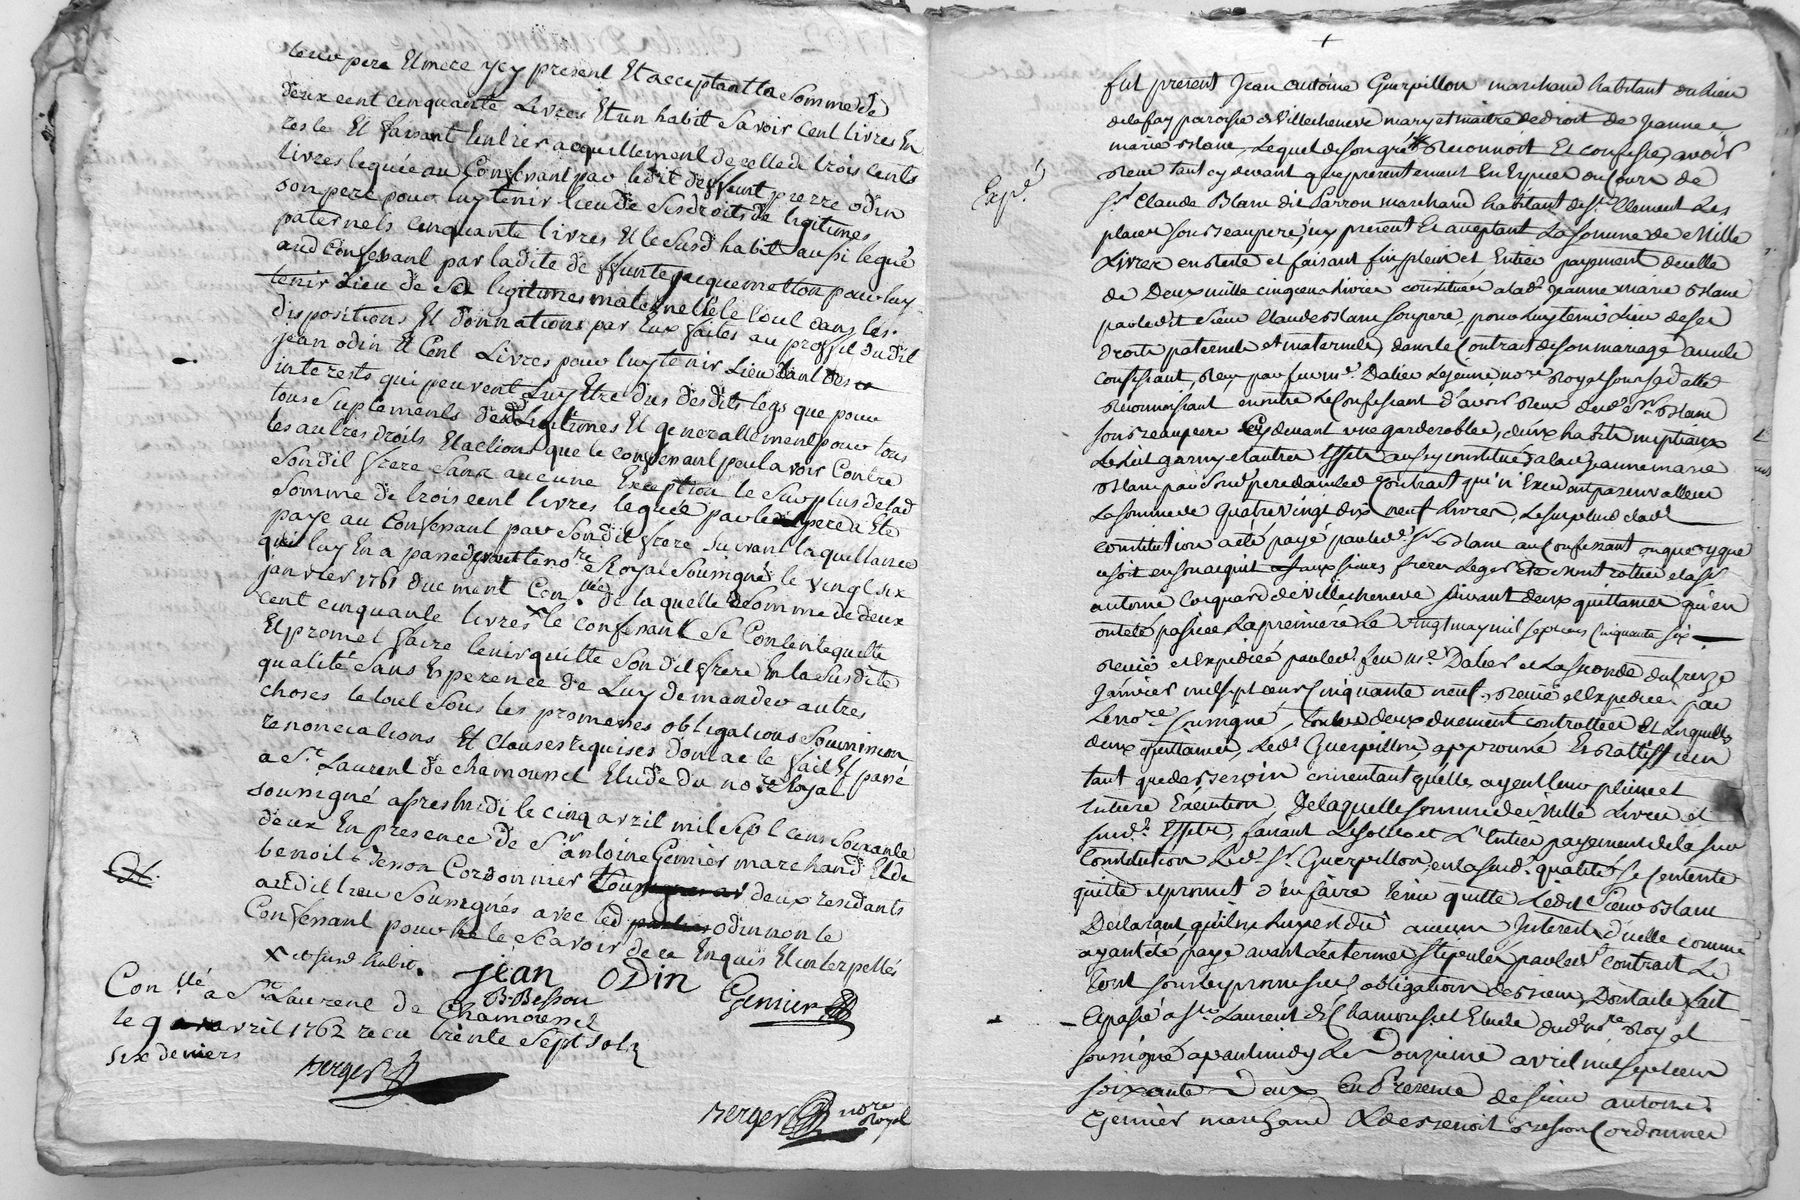 pere Et mere ycy present Et acceptant la Somme de
deux cent cinquante Livres Et un habit Savoir Cent livres En
reste Et faisant Lentier acquittement de celle de trois cents
livres leguée au Confessant par ledit deffunt pierre odin
son pere pour luy tenir lieu de Ses droits de legitimes
paternels cinquante livres Et le Susd habit aussi legué
aud Confessant par ladite deffunte jacquemetton pour luy
tenir Lieu de Ses legitimes maternelle le tout dans les
dispositions Et donnations par Eux faites au proffit dudit
jean odin Et Cent Livres pour luy tenir Lieu tant des
interests qui peuvent Luy Etre dus desdits legs que pour
tous Suplements desd Legitimes Et generallement pour tous
les autres droits Et actions que le confessant peut avoir Contre
Sondit frere Sans aucune Exception le Surplus de lad
Somme de trois cent livres leguée par led pere a Ete
payé au Confessant par Sondit frere Suivant la quittance
qui luy En a passé devant le nore Royal Soussigné le vingt six
janvier 1761 duement Conllée de laquelle Somme de deux
cent cinquante livres x le confessant Se Contente quitte
Et promet faire tenir quitte Son dit frere En la Susdite
qualité Sans Esperence de Luy demander autres
choses le tout Sous les promesses obligations Soumission
renonciations Et clauses requises dont acte fait Et passé
a St Laurent de chamousset Etude du nore Royal
soussigné apres midi le cinq avril mil Sept cent Soixante
deux En presence de Sr antoine Genier marchand Et de
benoit Besson Cordonnier deux residants
audit lieu Soussignés avec led odin non le
Confessant pour ne le Scavoir de ce Enquis Et interpellés
x et susd habit. jean ODin
B. Besson Genier
Conllé a St Laurent de Chamousset
le 9 avril 1762 recu trente Sept sols
six deniers
Berger
Berger nore
Royal
+
fut present Jean antoine Guerpillon marchand habitant du lieu
de la fay paroisse de Villecheneve mary et maitre de droit de Jeanne
marie Blanc, Lequel de Son gré Reconnoit Et confesse, avoir
Expé
Reçu tant cy devant que presentement En Espece du Cours de
Sr Claude Blanc dit Parron marchand habitant de St Clement Les
places son beaupere, icy present Et acceptant La Somme de Mille
Livres en reste et faisant fin plein et Entier payement de celle
de Deux mille cinq cens livres constituée a lad Jeanne marie Blanc
par ledit Sieur Claude Blanc Son pere, pour luy tenir Lieu de Ses
droits paternels et maternels, dans le Contrat de Son mariage avec le
confessant, Reçu par feu me Dalier Lejeune, nore Royal
Reconnoissant en outre le Confessant d'avoir Reçu dud Sr Blanc
son beaupere cy devant une garderobbe, deux habits nuptiaux
Le lit garny et autres Effets aussy constitués a lad Jeanne marie
Blanc par Sond pere dans led Contrat qui n'Excedent pas en valleur
La Somme de quatre vingt dix neuf livres, Le Surplus de lad
constitution a été payé par led Sr Blanc au Confessant ou quoy que
ce soit en son acquit aux sieurs freres Leger de Montrottier et a Sr
antoine Coquard de Villecheneve Suivant deux quittances qui en
ont été passées La premiere Le vingt may mil sept cens cinquante six
Receuë et Expediée par led feu me Dalier et La seconde du treize
Janvier mil sept cens cinquante neuf, Receuë et Expediée par
Le nore Soussigné, toutes deux duement controllées Et Lesquelles
deux quittances, Led Guerpillon approuve Et Rattiffie en
tant que de besoin consentant qu'elles ayent leur pleine et
Entiere Execution. De laquelle somme de Mille Livres et
Susd Effets, faisant Le Solde et L'Entier payement de la Susd
Constitution Led Sr Guerpillon en la Susd qualité, Se Contente
quitte et promet d'en faire tenir quitte Ledit Sieur Blanc
Declarant qu'il ne luy est dû aucuns Interets d'icelle comme
ayant été payé avant les termes Stipulés par led contrat Le
tout sous les promesses, obligation des biens, Dont acte, fait
Et passé a St Laurent de Chamousset Etude dud nore Royal
soussigné avant midy Le Douzieme avril mil sept cens
soixante Deux En Presence de sieur antoine
Genier marchand Et de benoit Besson Cordonnier